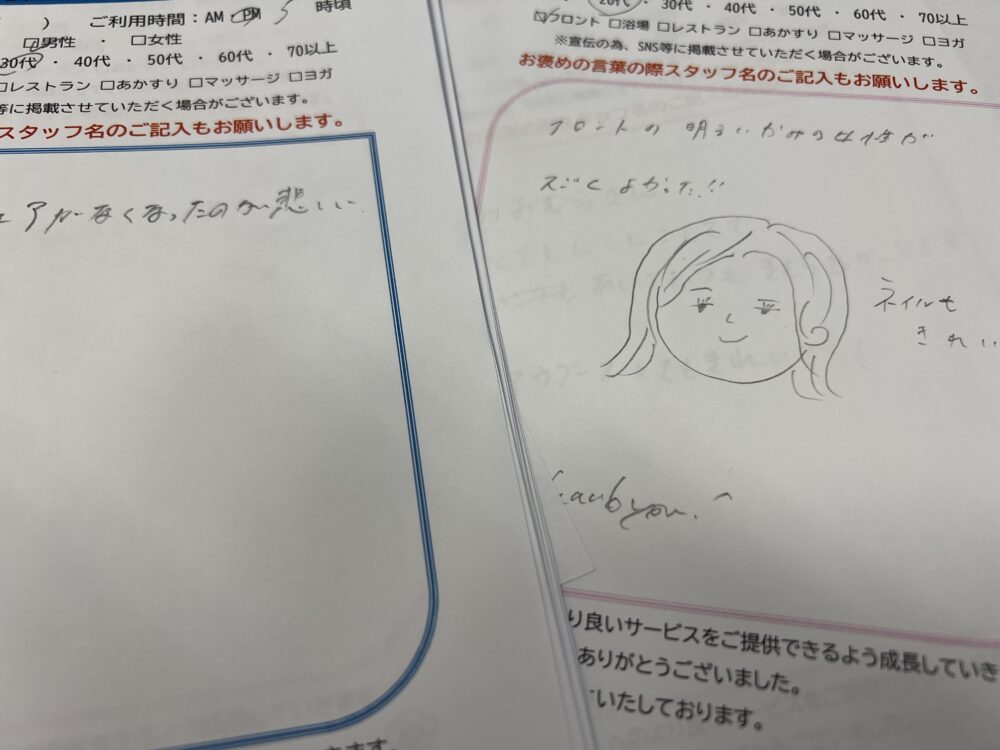 ) ご利用時間：AM PM 5 時頃
☑男性 ・ □女性
30代 ・ 40代 ・ 50代 ・ 60代 ・ 70以上
□レストラン □あかすり □マッサージ □ヨガ
等に掲載させていただく場合がございます。
スタッフ名のご記入もお願いします。
アがなくなったのが悲しい
20代 ・ 30代 ・ 40代 ・ 50代 ・ 60代 ・ 70以上
☑フロント □浴場 □レストラン □あかすり □マッサージ □ヨガ
※宣伝の為、SNS等に掲載させていただく場合がございます。
お褒めの言葉の際スタッフ名のご記入もお願いします。
フロントの明るいかみの女性が
スごくよかった!!
ネイルも
きれい
you.
り良いサービスをご提供できるよう成長していき
ありがとうございました。
いたしております。